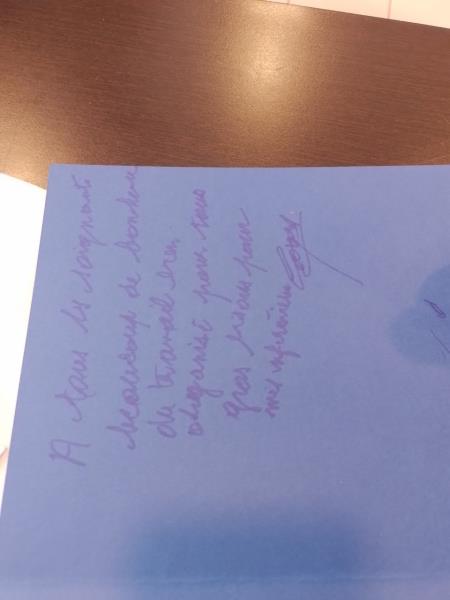 A tous les soignants
beaucoup de bonheur
du travail bien
organisé pour tous
gros bisous pour
mes infirmières